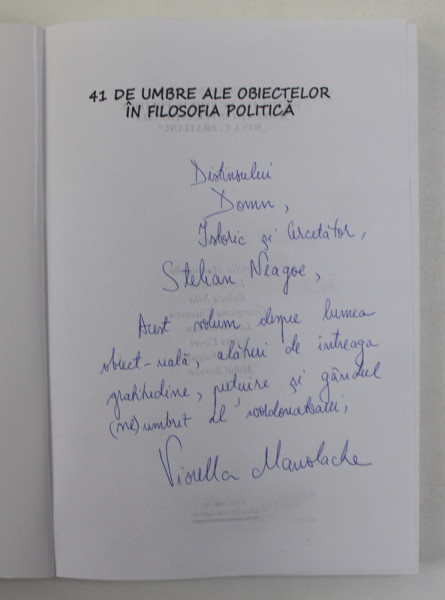 41 DE UMBRE ALE OBIECTELOR
ÎN FILOSOFIA POLITICĂ
Distinsului
Domn,
Istoric și Cercetător,
Stelian Neagoe,
Acest volum despre lumea
obiect-uală, alături de întreaga
gratitudine, prețuire și gândul
(ne)umbrit al coordonatoarei,
Viorella Manolache